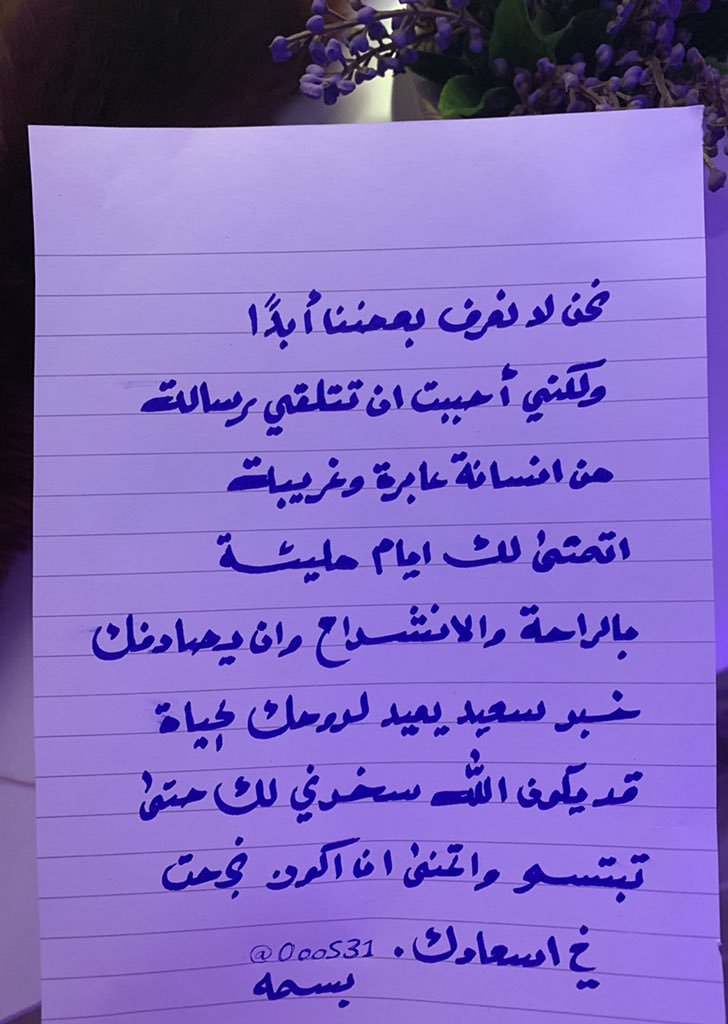 نحن لا نعرف بعضنا أبدًا
ولكنني أحببت ان تتلقي رسالة
من انسانة عابرة وغريبة
اتمنى لك ايام مليئة
بالراحة والانشراح وان يصادفك
خبر سعيد يعيد لروحك الحياة
قد يكون الله سخرني لك حتى
تبتسم واتمنى ان اكون نجحت
في اسعادك . @OooS31
بسمه